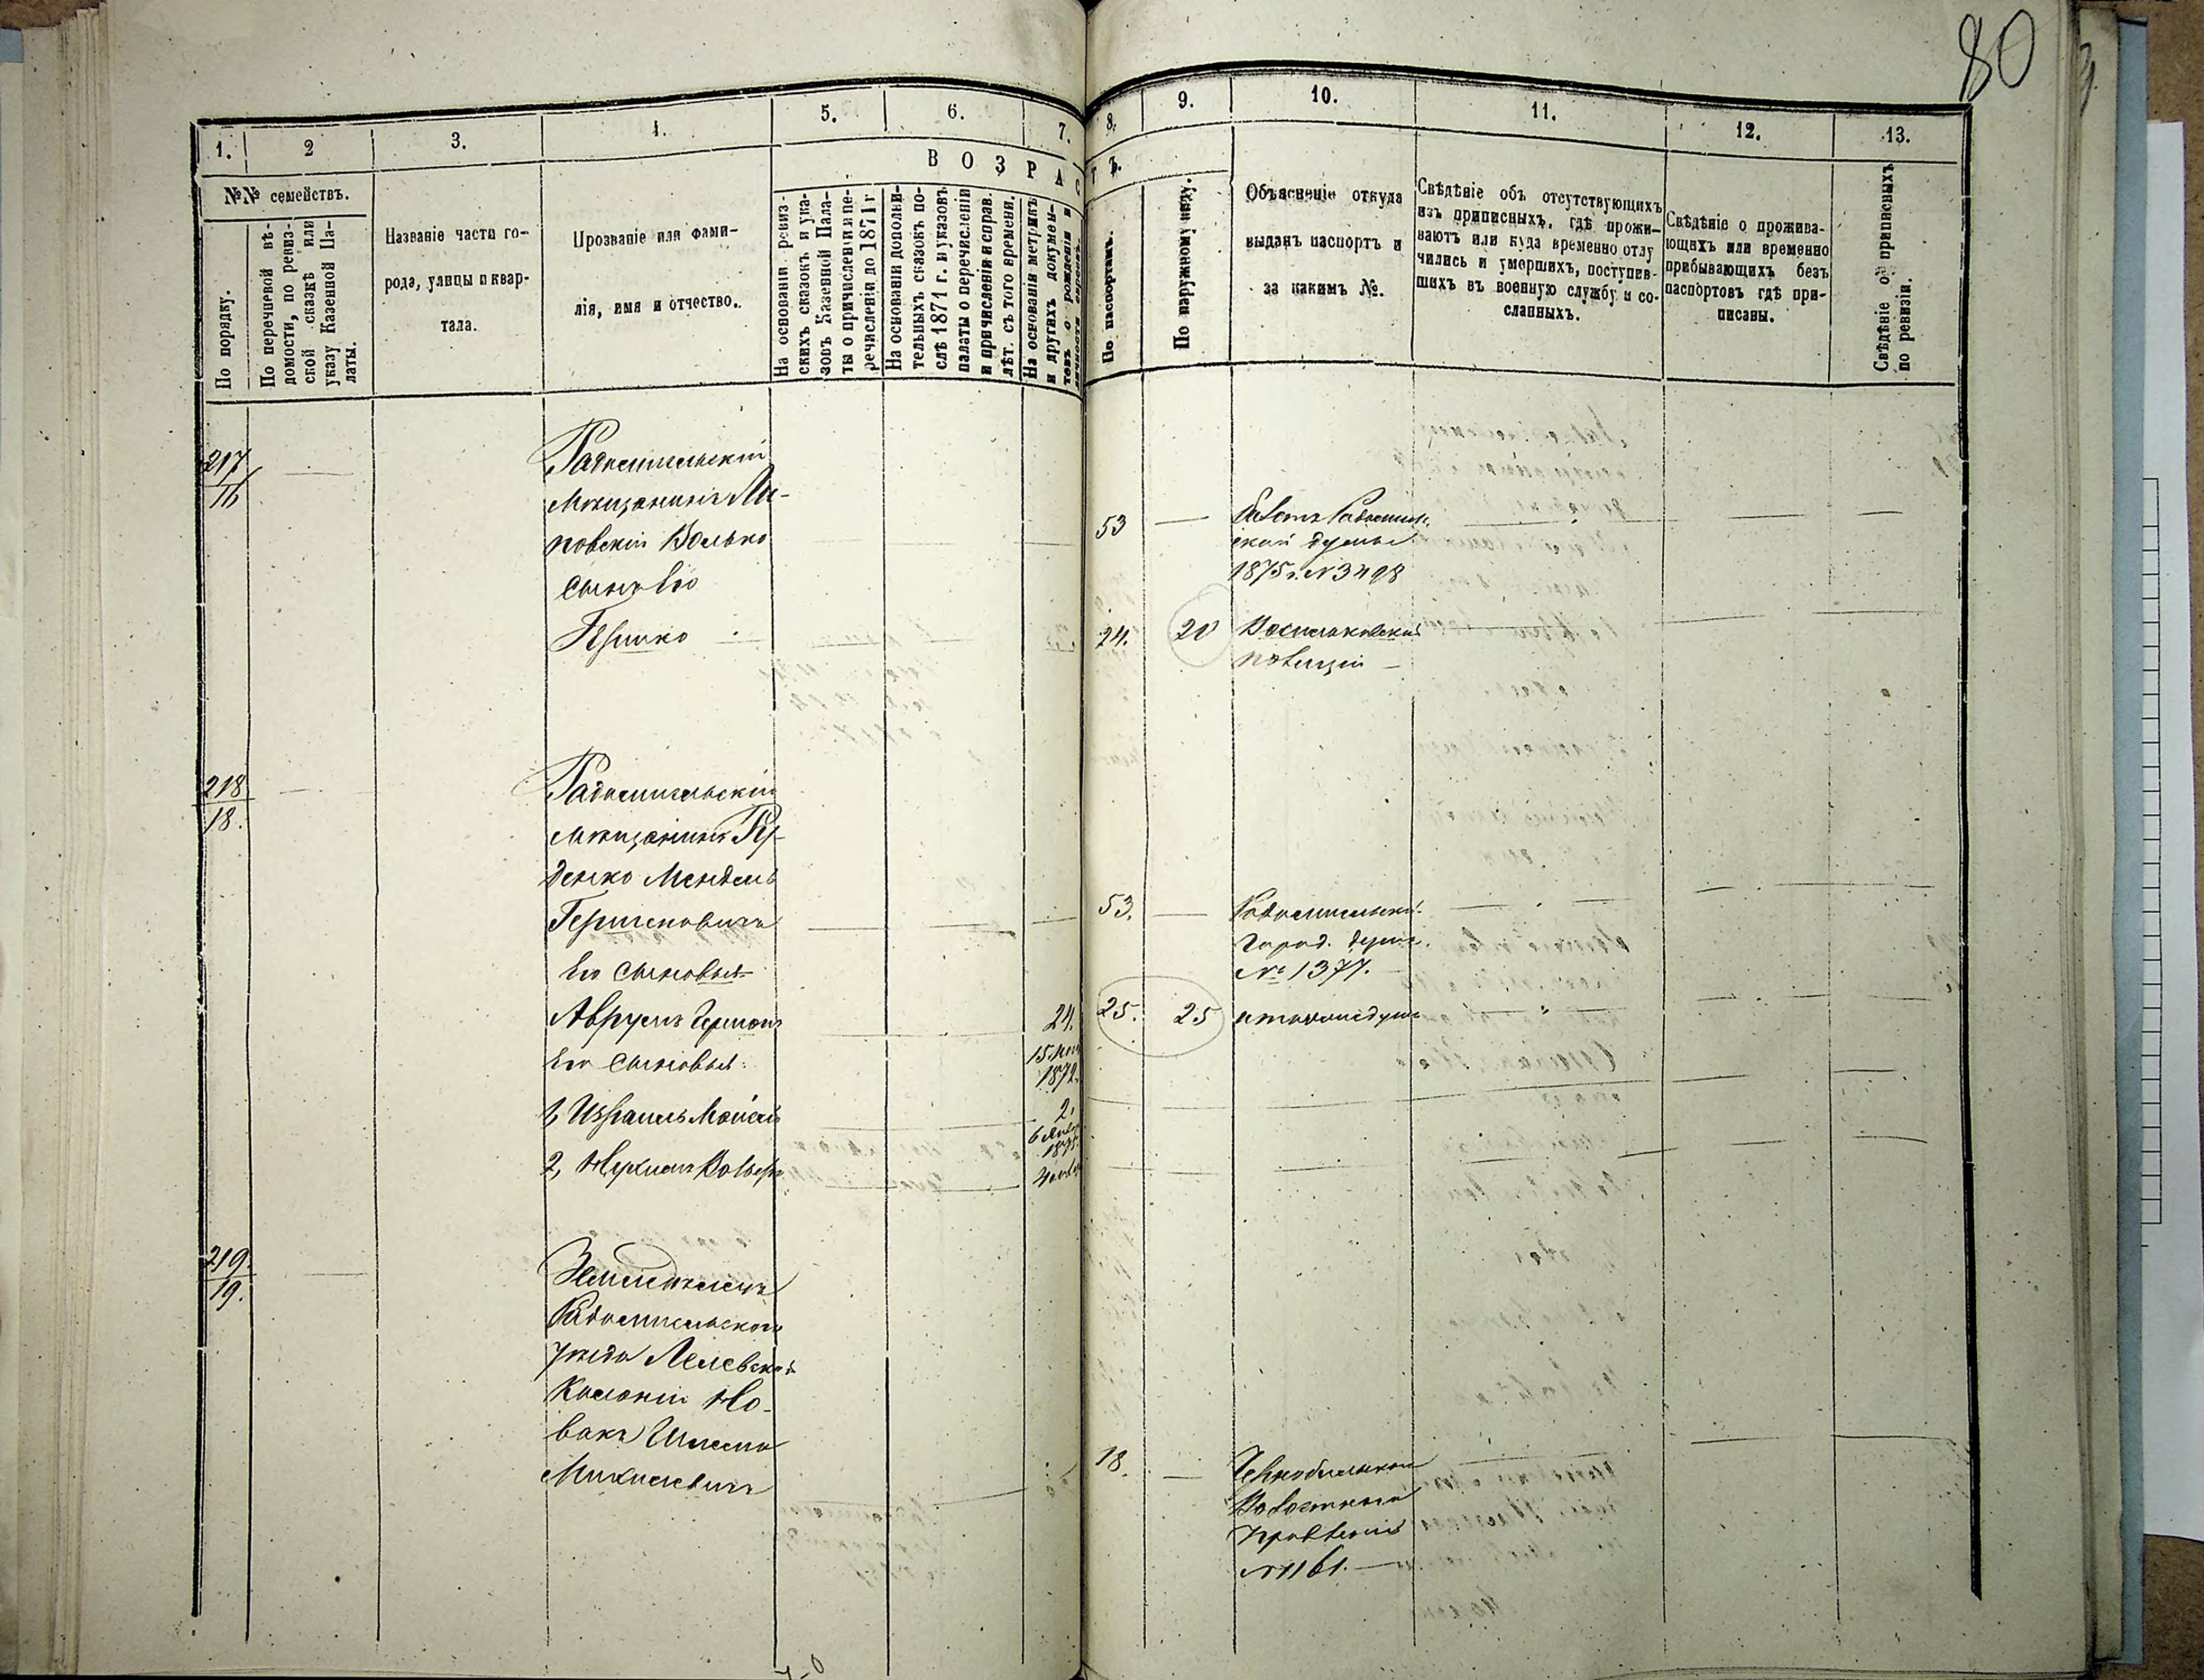 80
1.
2
3.
4.
5.
6.
7.
8.
9.
10.
11.
12.
13.
ВОЗРАС
ТЪ.
№№ семействъ.
По порядку.
По перечневой вѣ-
домости, по ревиз-
ской сказкѣ или
указу Казенной Па-
латы.
Названіе части го-
рода, улицы и квар-
тала.
Прозваніе или фами-
лія, имя и отчество.
На основаніи ревиз-
скихъ сказокъ и ука-
зовъ Казенной Пала-
ты о причисленіи и пе-
речисленіи до 1871 г.
На основаніи дополни-
тельныхъ сказокъ по-
слѣ 1871 г. и указовъ
палаты о перечисленіи
и причисленіи и справ.
лѣт. съ того времени.
На основаніи метрикъ
и другихъ докумен-
товъ о рожденіи и
По паспортамъ.
По наружному виду.
Объясненіе откуда
выданъ паспортъ и
за какимъ №.
Свѣдѣніе объ отсутствующихъ
изъ приписныхъ, гдѣ прожи-
ваютъ или куда временно отлу
чились и умершихъ, поступив-
шихъ въ военную службу и со-
сланныхъ.
Свѣдѣніе о прожива-
ющихъ или временно
прибывающихъ безъ
паспортовъ гдѣ при-
писаны.
Свѣдѣніе о приписныхъ
по ревизіи.
217
16
Радомисльскій
Мѣщанинъ Ли-
повскій Волько
53
Радомисль-
ской думы
1875 г. № 3498
сынъ Его
Гершко
24.
20
Васильковской
полиціи
218
18.
Радомисльскій
мѣщанинъ Ру-
денко Мендель
Гершковичъ
53.
Радомисльской
Город. думы
№ 1377.
Его сыновья
Аврумъ Гершонъ
24.
25.
25
Его сыновья:
15
1872.
1, Израиль Мойсей
2.
6 Янв
1875
2, Нухимъ Вольфъ
219.
19.
Земледѣлецъ
Радомисльскаго
уѣзда
Колоніи Но-
вакъ Шлема
Михилевичъ
18.
Чернобыльскаго
Волостнаго
Правленія
№ 1161.